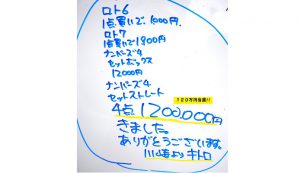 ロト6
1点買いで、1000円.
ロト7
1点買いで1800円
ナンバーズ4
セットボックス
12000円
ナンバーズ4
セットストレート
１２０万円当選!!
4点1200,000円
きました。
ありがとうございます。
川崎よりキトロ